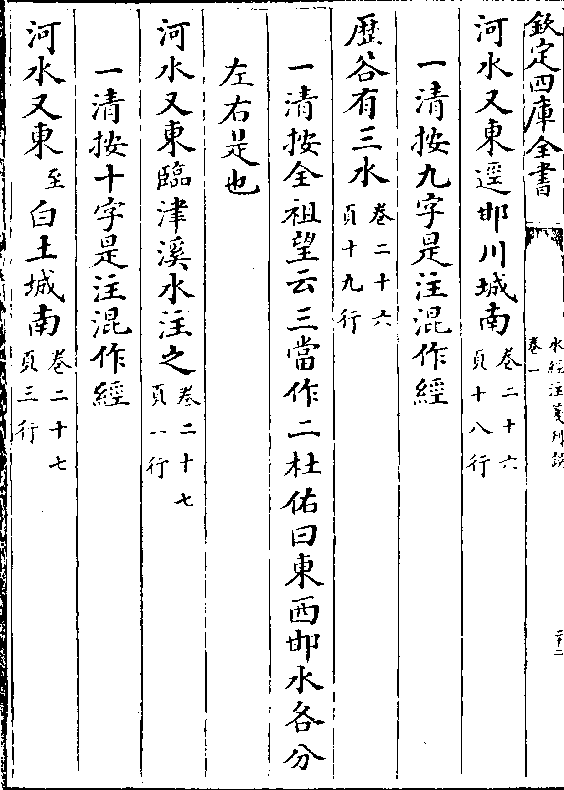 欽定四庫全書
水經注箋刊誤
卷一
二十二
河水又東逕邯川城南卷二十六頁十八行
一清按九字是注混作經
歷谷有三水卷二十六頁十九行
一清按全祖望云三當作二杜佑曰東西邯水各分
左右是也
河水又東臨津溪水注之卷二十七頁一行
一清按十字是注混作經
河水又東至白土城南卷二十七頁三行